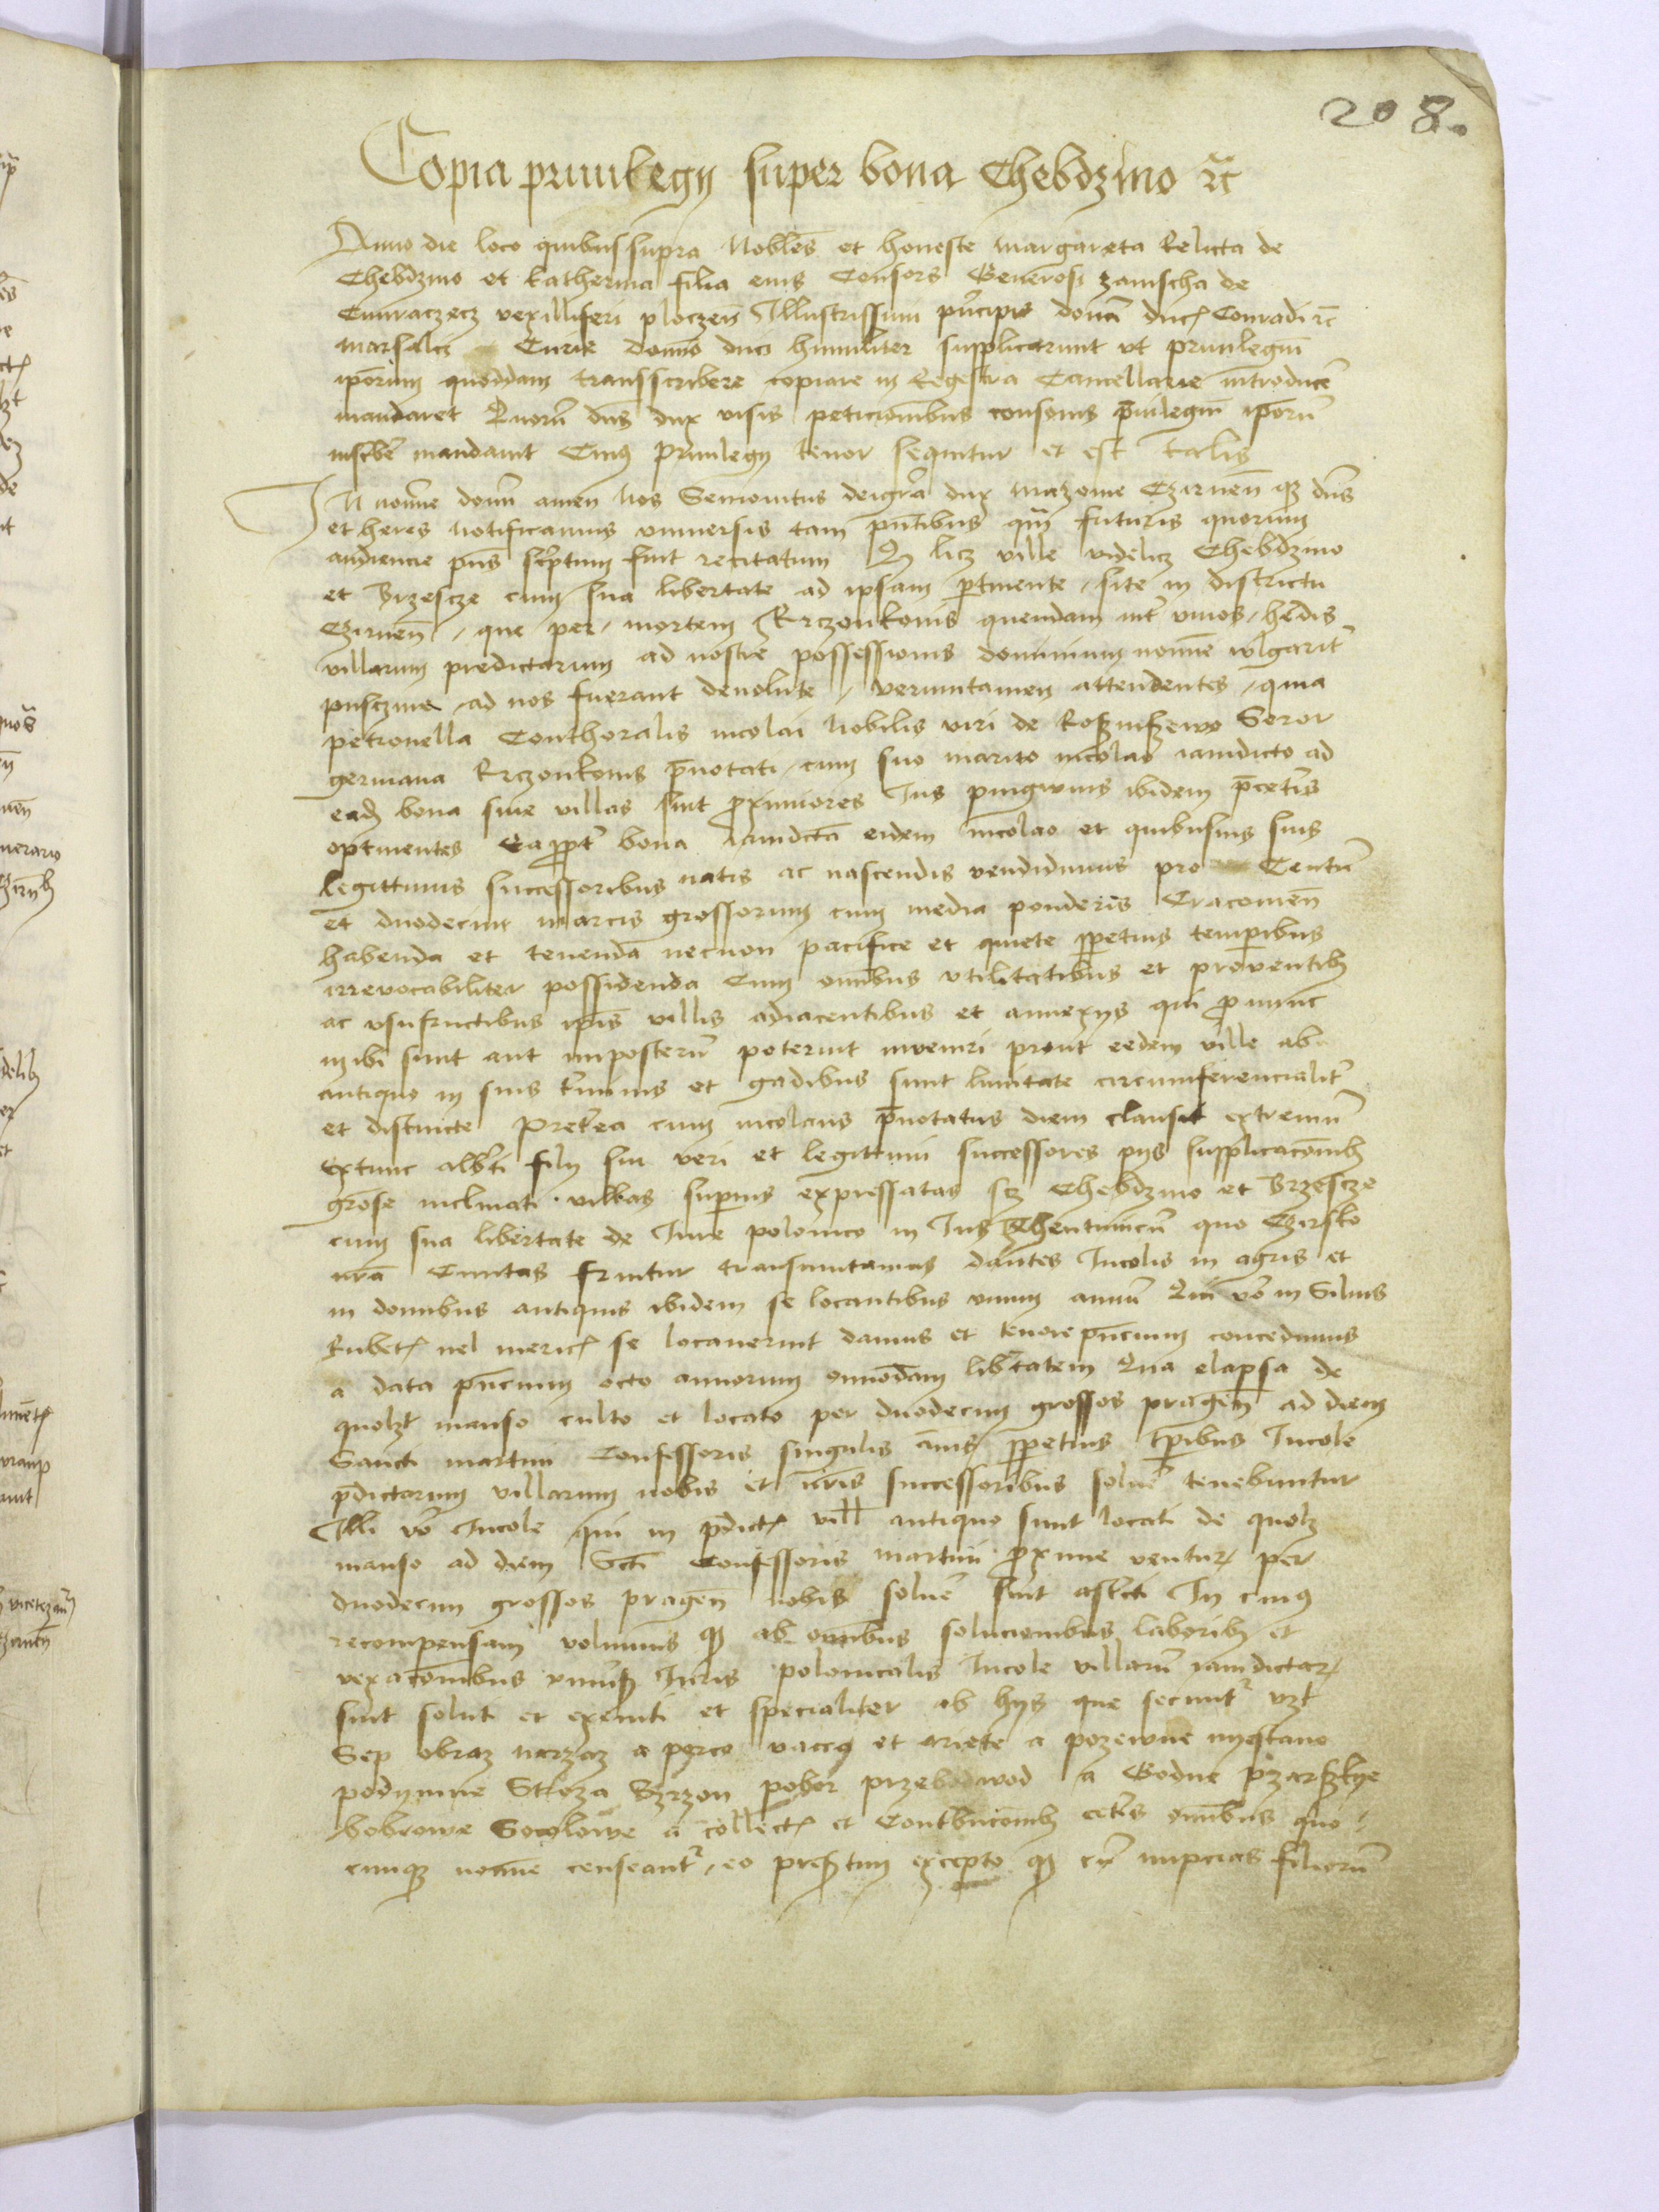 208.
Copia priuilegij super bona Chebdzino etc
Anno die loco quibus supra Nobles et honeste Margareta Relicta de
Chebdzino et Katherina filia eius Consors Generosi zamscha de
vexilliferi ploczen Illustrissimi principis domi ducis Conradi etc
Marsalci Curie domno duci humiliter supplicarunt vt priuilegium
ipsorum quoddam transscribere copiare in Regestra Cancellarie introducere
mandaret Quorum dns dux visis peticionibus consonis priuilegium ipsorum
inscribere mandauit Cuius priuilegij tenor sequitur et est talis
In nomine domini amen Nos Semouitus dei gra dux Mazouie Czirnen qz dns
et heres Notificamus vniuersis tam pntibus qm futuris quorum
audiencie pns scriptum fuit recitatum Q licz ville videlicz Chebdzino
et Brzescze cum sua libertate ad ipsam pertinente site in districtu
Czirnen que per mortem Krczonkonis quendam inter viuos hedis
villarum predictarum ad nostre possessionis dominium nomine wlgariter
pusczina ad nos fuerant deuolute veruntamen attendentes quia
petronella Conthoralis nicolai Nobilis viri de Soror
germana Krczonkonis prenotati cum suo marito nicolao iamdicto ad
eadem bona siue villas sint proximiores Ius pinguius ibidem pre ceteris
optinentes Eapropter bona iamdicta eidem nicolao et quibusuis suis
legittimis successoribus natis ac nascendis vendidimus pro Centum
et duodecim marcis grossorum cum media ponderis Cracouien
habenda et tenenda necnon pacifice et quiete perpetuis temporibus
irreuocabiliter possidenda Cum omnibus vtilitatibus et prouentibus
ac vsufructibus ipsis villis adiacentibus et annexys qui pro nunc
inibi sunt aut imposterum poterint inveniri prout eedem ville ab
antiquo in suis terminis et gadibus sunt limitate circumferencialiter
et distincte Preterea cum nicolaus prenotatus diem clausit extremum
Extunc alberti filij sui veri et legittimi successores pijs supplicacionibus
grose inclinati villas superius expressatas scz Chebdzino et Brzescze
cum sua libertate de Iure polonico in Ius Thentunicum quo Czirsko
nra Ciuitas fruitur transmutamus dantes Incolis in agris et
in domibus antiquis ibidem se locantibus vnum annum Qui vero in Siluis
Rubetis uel mericis se locauerint damus et tenore pncium concedimus
a data pncium octo annorum omnodam libertatem Qua elapsa de
quolibet manso culto et locato per duodecim grossos pragen ad diem
Sancti martini Confessoris singulis annis perpetuis temporibus Incole
predictarum villarum nobis et nris successoribus soluere tenebuntur
Illi vero Incole qui in predictis vill antiquo sunt locati de quolz
manso ad diem Scti Confessoris martini proxime venturum per
duodecim grossos pragen nobis soluere sint astricti In cuius
recompensam volumus qz ab omnibus solucionibus laboribus et
vexacionibus Iuris polonicalis Incole villarum iamdictarum
sint soluti et exempti et specialiter ab hijs que secuntur vzt
Sep obraz narzaz a porco vacca et ariete a pozewne nyestano
podymne Stroza Szrzon pobor przewod a Godne
bobrowe Socolowe a collectis et Contribucionibus ceteris omnibus quo
cunque nomine censeantur eo excepto qz nupcias filiarum